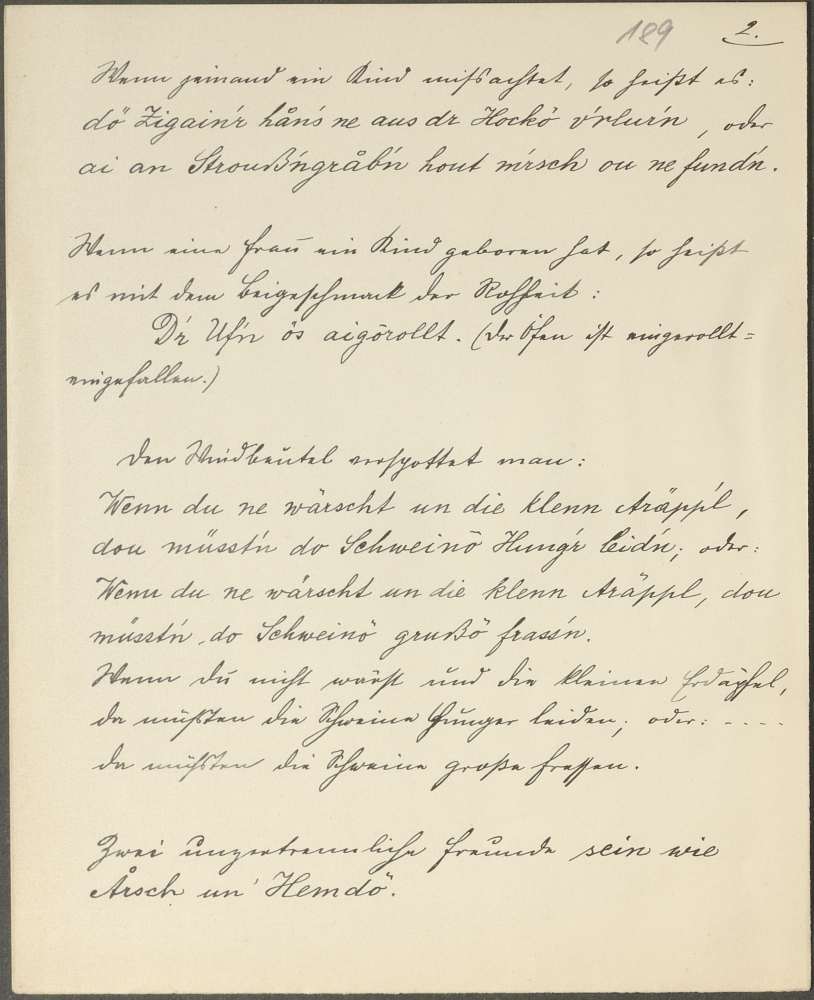 189 2.
Wenn jemand ein Kind mißachtet, so heißt es:
dö Zigain'r hån's ne aus dr Hockö v'rlur'n, oder
ai an Strouß'ngråb'n hout m'rsch ou ne fund'n.
Wenn eine Frau ein Kind geboren hat, so heißt
es mit dem Beigeschmack der Rohheit:
D'r Uf'n ös aigörollt. (Der Ofen ist eingerollt=
eingefallen.)
Den Windbeutel verspottet man:
Wenn du ne wärscht un die klenn Aräpp'l,
dou müsst'n do Schweinö Hung'r leid'n; oder:
Wenn du ne wärscht un die klenn Aräppl, dou
müsst'n do Schweinö grußö frass'n.
Wenn du nicht wärst und die kleinen Erdäpfel,
da müßten die Schweine Hunger leiden; oder: ----
da müßten die Schweine große fressen.
Zwei unzertrennliche Freunde sein wie
Årsch un' Hemdö.